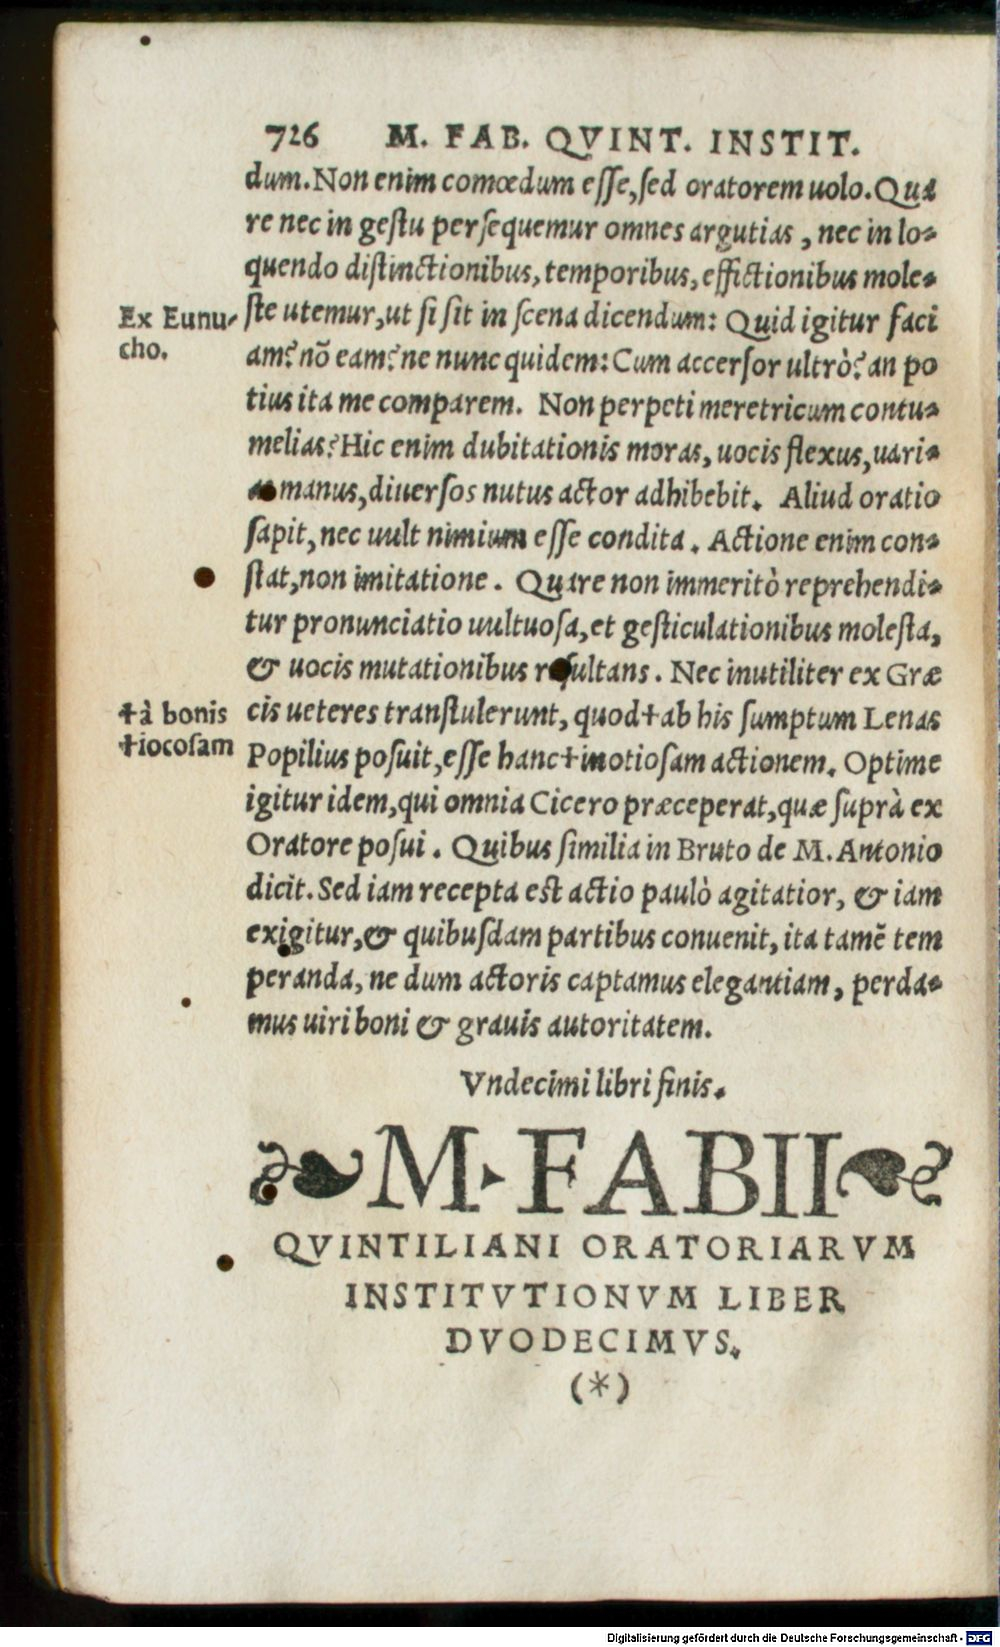 726 M. FAB. QVINT. INSTIT.
dum. Non enim comœdum eſſe, ſed oratorem uolo. Qua
re nec in geſtu perſequemur omnes argutias, nec in lo-
quendo diſtinctionibus, temporibus, effictionibus mole-
Ex Eunu-
cho.
ſte utemur, ut ſi ſit in ſcena dicendum: Quid igitur faci
am? nõ eam? ne nunc quidem: Cum accerſor ultrò? an po
tius ita me comparem. Non perpeti meretricum contu-
melias? Hic enim dubitationis moras, uocis flexus, uari-
manus, diuerſos nutus actor adhibebit. Aliud oratio
ſapit, nec uult nimium eſſe condita. Actione enim con-
ſtat, non imitatione. Quare non immeritò reprehendi-
tur pronunciatio uultuoſa, et geſticulationibus moleſta,
& uocis mutationibus reſultans. Nec inutiliter ex Græ
†à bonis
†iocoſam
cis ueteres tranſtulerunt, quod†ab his ſumptum Lenas
Popilius poſuit, eſſe hanc†inotioſam actionem. Optime
igitur idem, qui omnia Cicero præceperat, quæ ſuprà ex
Oratore poſui. Quibus ſimilia in Bruto de M. Antonio
dicit. Sed iam recepta est actio paulò agitatior, & iam
exigitur, & quibuſdam partibus conuenit, ita tamẽ tem
peranda, ne dum actoris captamus elegantiam, perda-
mus uiri boni & grauis autoritatem.
Vndecimi libri finis.
M. FABII
QVINTILIANI ORATORIARVM
INSTITVTIONVM LIBER
DVODECIMVS.
(*)
Digitalisierung gefördert durch die Deutsche Forschungsgemeinschaft - DFG